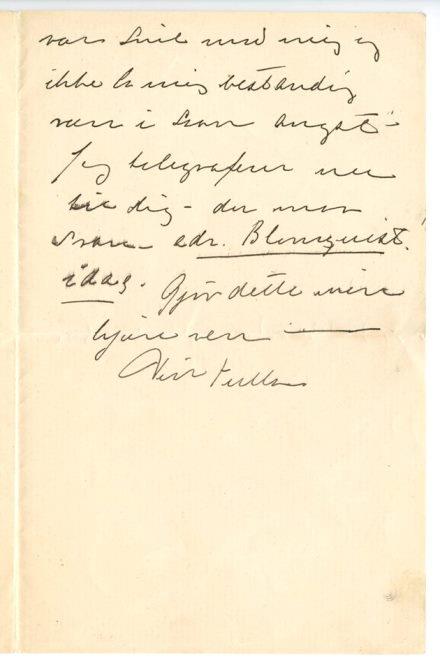 vær snil med mig og
ikke la mig bestandig
være i saan angst –
Jeg telegraferer nu
til dig – du maa
svare – adr. Blomquist.
idag. Gjør dette min
kjære ven ———
Din Tulla